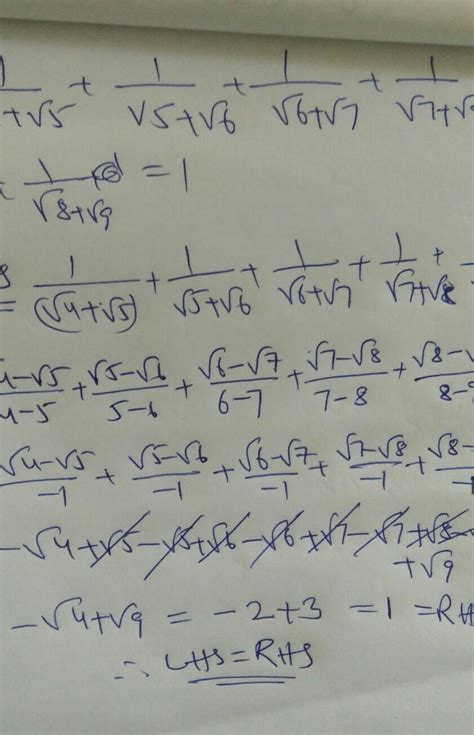 1/+√5 + 1/√5+√6 + 1/√6+√7 + 1/√7+√
1/√8+√9 = 1
= 1/(√4+√5) + 1/√5+√6 + 1/√6+√7 + 1/√7+√8 +
4-√5/4-5 + √5-√6/5-6 + √6-√7/6-7 + √7-√8/7-8 + √8-√/8-9
√4-√5/-1 + √5-√6/-1 + √6-√7/-1 + √7-√8/-1 + √8-/-1
-√4+√5-√5+√6-√6+√7-√7+√8
+√9
-√4+√9 = -2+3 = 1 = RH
∴ LHS = RHS